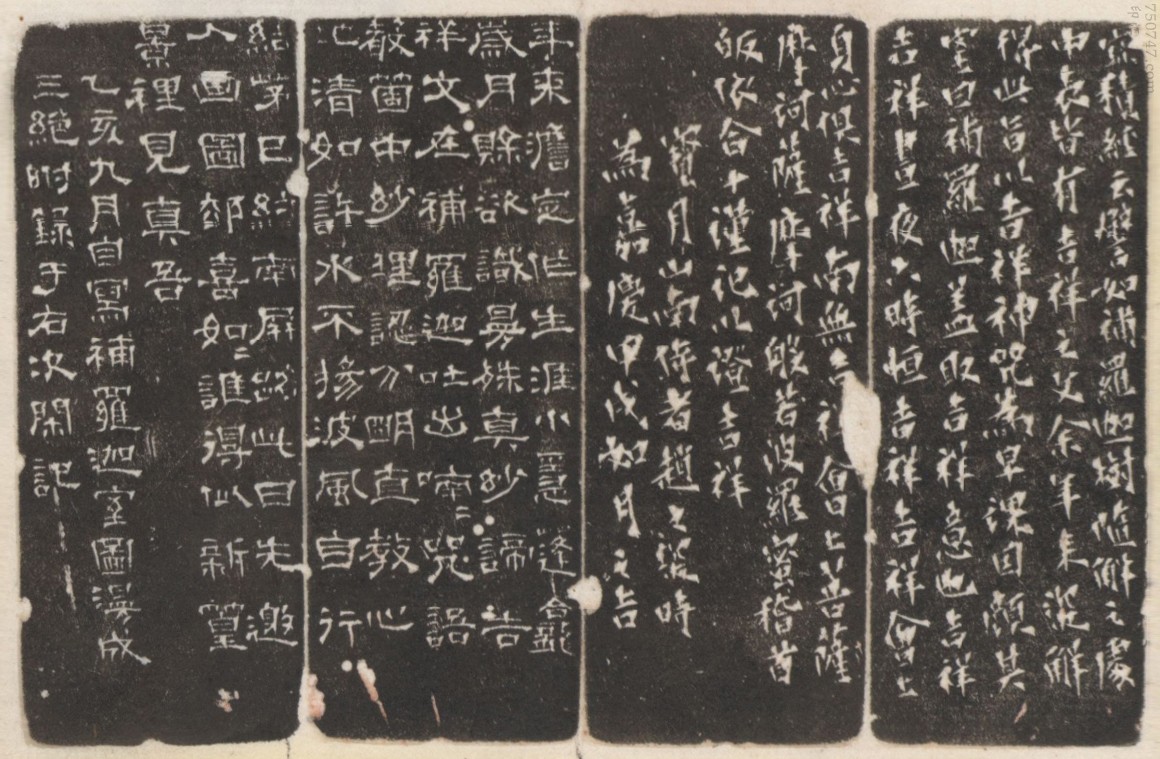 寶積經云譬如補羅迦樹隨解之處
而表皆有吉祥之文余年來從解
得此旨以吉祥神咒為早課因顏其
室曰補羅迦蓋取吉祥意也吉祥
吉祥晝夜六時恒吉祥吉祥會上
身心俱吉祥南無吉祥會上菩薩
摩訶薩摩訶般若波羅蜜稽首
皈依合十謹記以證吉祥
寶月山南侍者趙之琛時
為嘉慶甲戌如月之吉
年來澹定作生涯小
歲月賒欲識曼殊真妙諦吉
祥文在補羅迦吐出喃喃咒語
散箇中妙理認分朙直教心
地清如許水不揚波風自行
結茅已約南屏此日先邀
入畫圖都喜如如誰得似新篁
景裡見真吾
乙亥九月自寫補羅迦室圖漫成
三絕附錄于右次閑記